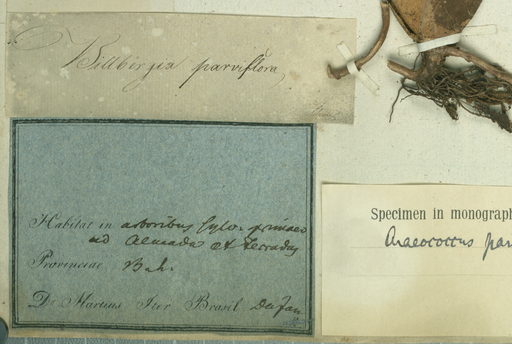 Billbergia parviflora
Habitat in arboribus Sylv. primaev
ad Almada et Ferradas
Provinciae Bah.
Dr Martius Iter Brasil. Dec Jan.
Specimen in monograph
Araeococcus par